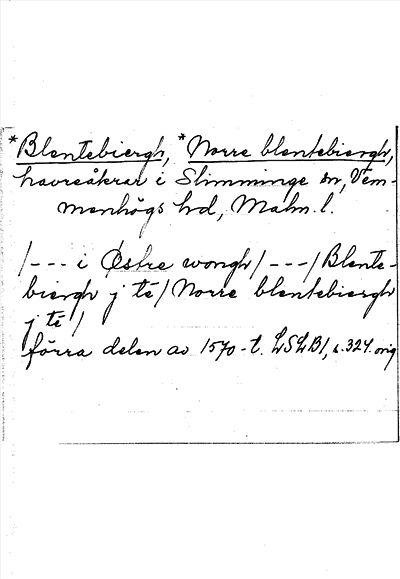 *Blentebiergh, *Norre blentebiergh,
havreåkrar i Slimminge sn, Vem-
menhögs hd, Malm. l.
/--- i Østre wongh/ ---/ Blente-
biergh j té/ Norre blentebiergh
j té/
förra delen av 1570-t. LSLB1, s. 324. orig